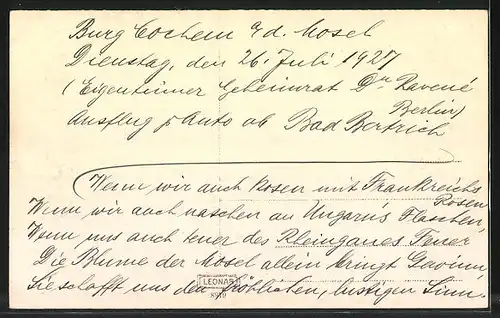 Burg Cochem a/d. Mosel
Dienstag, den 26. Juli 1927
(Eigentümer Geheimrat Dr. Ravené
Berlin)
Ausflug p Auto ab Bad Bertrich
Wenn wir auch kosen mit Frankreichs
Rosen
Wenn wir auch naschen an Ungarns Flaschen,
Wenn uns auch teuer des Rheingaues Feuer
Die Blume der Mosel allein bringt Gewinn,
Sie schafft uns den fröhlichen, lustigen Sinn.
LEONAR